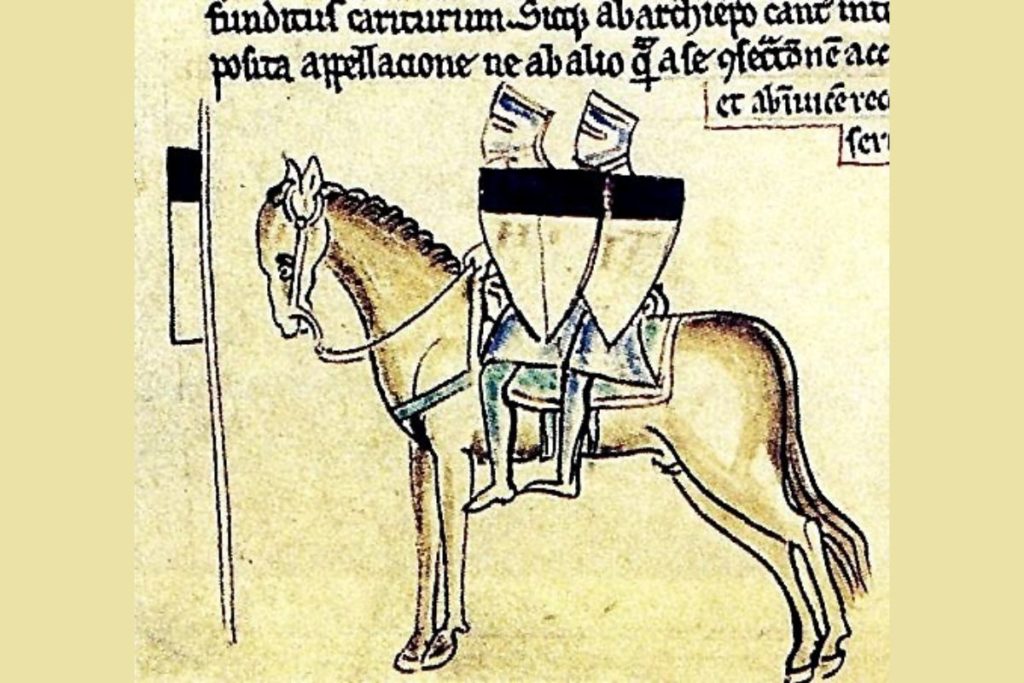 funditus cariturum. Sicq; ab archiepo cant int
posita appellatione ne ab alio qͣ a se ꝯsecͣtōnē acc
et ab īuicē rec
seru